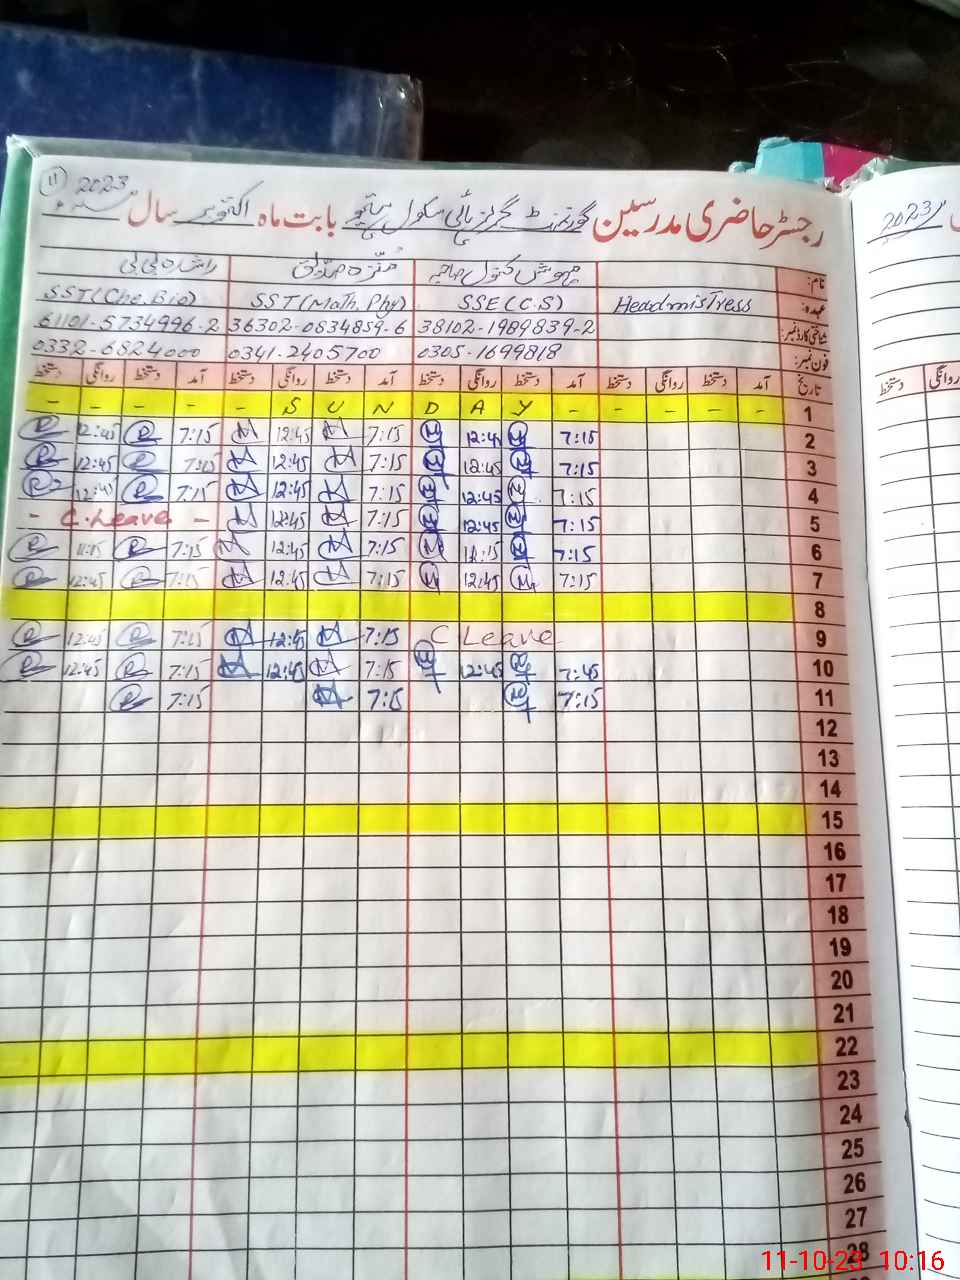 11 2023
رجسٹر حاضری مدرسین گورنمنٹ گرلز ہائی سکول بابت ماہ اکتوبر سال 2023
نام: مہوش کنول صاحبہ راشدہ بی بی
عہدہ: Headmistress SSE(C.S) SST(Math.Phy) SST(Che.Bio)
شناختی کارڈ نمبر: 38102-1989839-2 36302-0834859-6 61101-5734996-2
فون نمبر: 0305-1699818 0341-2405700 0332-6824000
تاریخ آمد دستخط روانگی دستخط آمد دستخط روانگی دستخط آمد دستخط روانگی دستخط آمد دستخط روانگی دستخط
1 - - - - - S U N D A Y - - - - -
2 7:15 12:4 7:15 12:45 7:15 12:45
3 7:15 12:45 7:15 12:45 7:15 12:45
4 7:15 12:45 7:15 12:45 7:15 12:45
5 7:15 12:45 7:15 12:45 - C.Leave -
6 7:15 12:15 7:15 12:45 7:15 11:15
7 7:15 12:45 7:15 12:45 7:15 12:45
8
9 C Leave 7:15 12:45 7:15 12:45
10 7:45 12:45 7:15 12:45 7:15 12:45
11 7:15 7:15 7:15
12
13
14
15
16
17
18
19
20
21
22
23
24
25
26
27
28
2023
دستخط روانگی
11-10-23 10:16